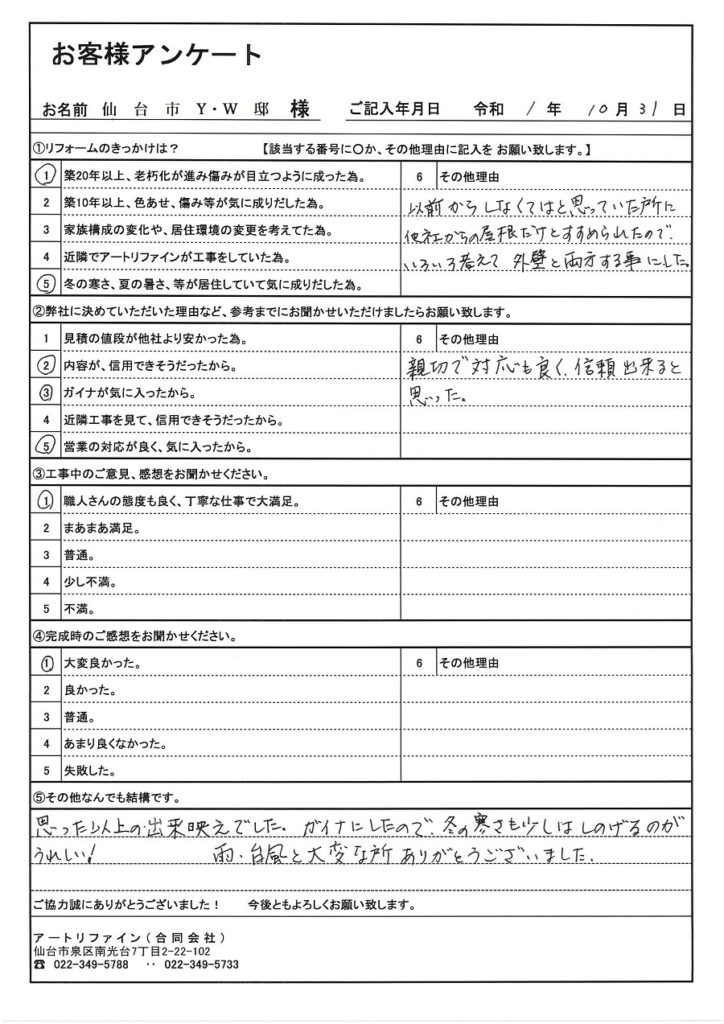 お客様アンケート
お名前 仙台市 Y・W 邸 様 ご記入年月日 令和 1 年 10 月 31 日
①リフォームのきっかけは? 【該当する番号に〇か、その他理由に記入を お願い致します。】
1 築20年以上、老朽化が進み傷みが目立つように成った為。 6 その他理由
2 築10年以上、色あせ、傷み等が気に成りだした為。 以前からしなくてはと思っていた所に
3 家族構成の変化や、居住環境の変更を考えてた為。 他社からの屋根だけとすすめられたので、
4 近隣でアートリファインが工事をしていた為。 いろいろ考えて 外壁と両方する事にした。
5 冬の寒さ、夏の暑さ、等が居住していて気に成りだした為。
②弊社に決めていただいた理由など、参考までにお聞かせいただけましたらお願い致します。
1 見積の値段が他社より安かった為。 6 その他理由
2 内容が、信用できそうだったから。 親切で対応も良く、信頼出来ると
3 ガイナが気に入ったから。 思った。
4 近隣工事を見て、信用できそうだったから。
5 営業の対応が良く、気に入ったから。
③工事中のご意見、感想をお聞かせください。
1 職人さんの態度も良く、丁寧な仕事で大満足。 6 その他理由
2 まあまあ満足。
3 普通。
4 少し不満。
5 不満。
④完成時のご感想をお聞かせください。
1 大変良かった。 6 その他理由
2 良かった。
3 普通。
4 あまり良くなかった。
5 失敗した。
⑤その他なんでも結構です。
思った以上の出来映えでした。ガイナにしたので、冬の寒さも少しは しのげるのが
うれしい! 雨、台風と大変な所 ありがとうございました。
ご協力誠にありがとうございました! 今後ともよろしくお願い致します。
アートリファイン(合同会社)
仙台市泉区南光台7丁目2-22-102
☎ 022-349-5788 ‥ 022-349-5733